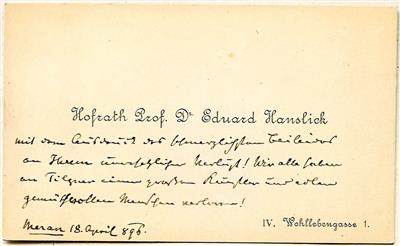 Hofrath Prof. Dr Eduard Hanslick
mit dem Ausdruck des schmerzlichsten Beileides
an Ihrem unersetzlichen Verlust! Wir alle haben
an Tilgner einen großen Künstler und edlen
gemüthvollen Menschen verloren!
Meran 18. April 896.
IV. Wohllebengasse 1.